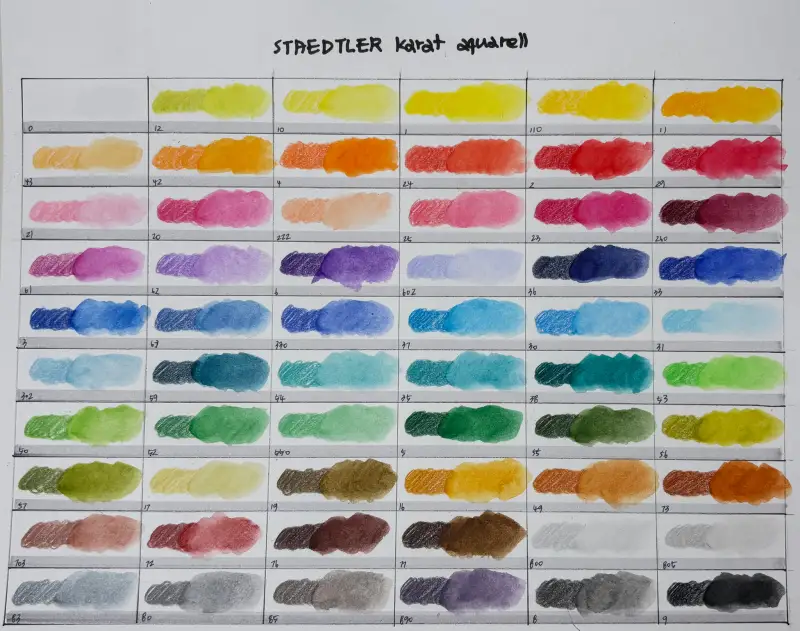 STAEDTLER karat aquarell
0 12 10 1 110 11
43 42 4 24 2 29
21 20 222 25 23 260
61 62 6 602 36 33
3 69 370 37 30 31
302 49 44 35 38 53
50 52 550 5 55 56
57 17 19 16 49 73
703 72 76 77 800 805
83 80 85 890 8 9